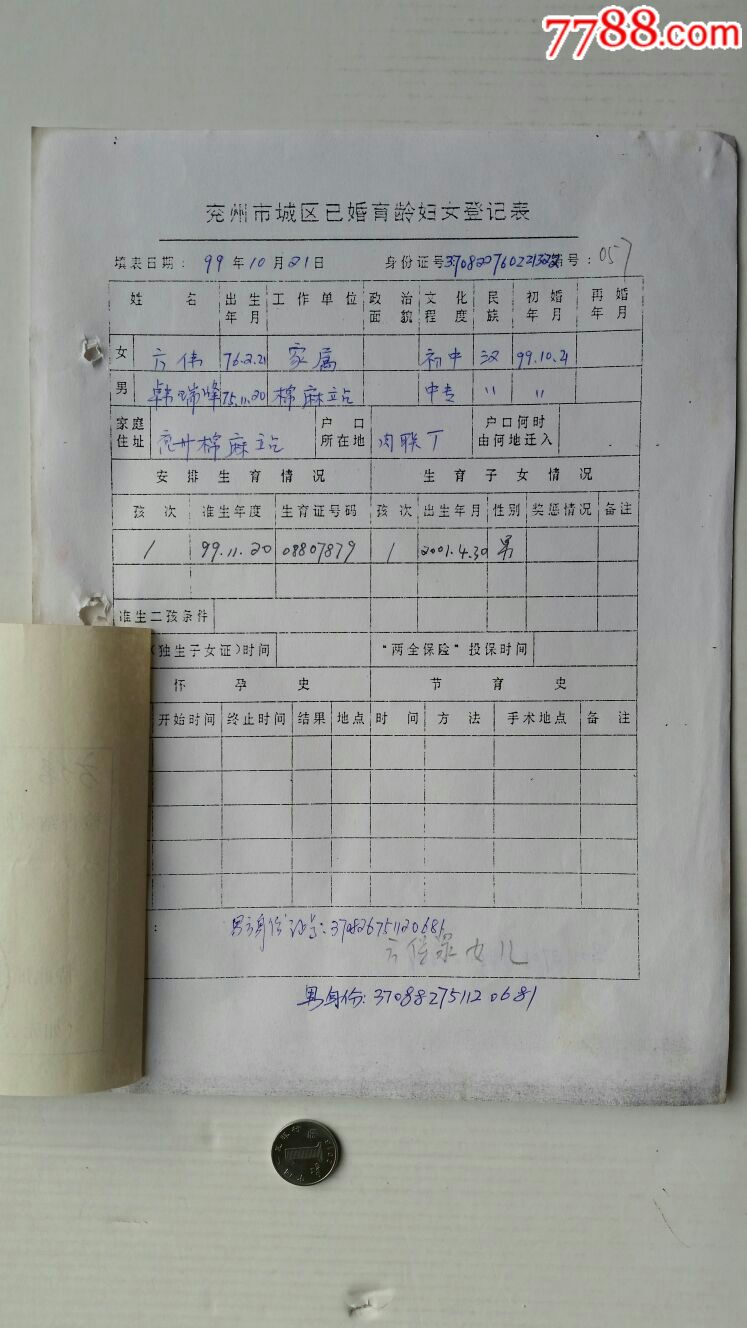 7788.com
兖州市城区已婚育龄妇女登记表
填表日期： 99 年 10 月 21 日 身份证号 号： 057
姓 名 出生年月 工作单位 政治面貌 文化程度 民族 初婚年月 再婚年月
女 方伟 76.2.21 家属 初中 汉 99.10.21
男 韩瑞峰 75.11.20 棉麻站 中专 〃 〃
家庭住址 兖州棉麻站 户口所在地 肉联厂 户口何时由何地迁入
安排生育情况 生育子女情况
孩次 准生年度 生育证号码 孩次 出生年月 性别 奖惩情况 备注
1 99.11.20 08807879 1 2001.4.30 男
准生二孩条件
(独生子女证)时间 “两全保险”投保时间
怀孕史 节育史
开始时间 终止时间 结果 地点 时间 方法 手术地点 备注
男方身份证号：370826751120681
女儿
男身份：370882751120681